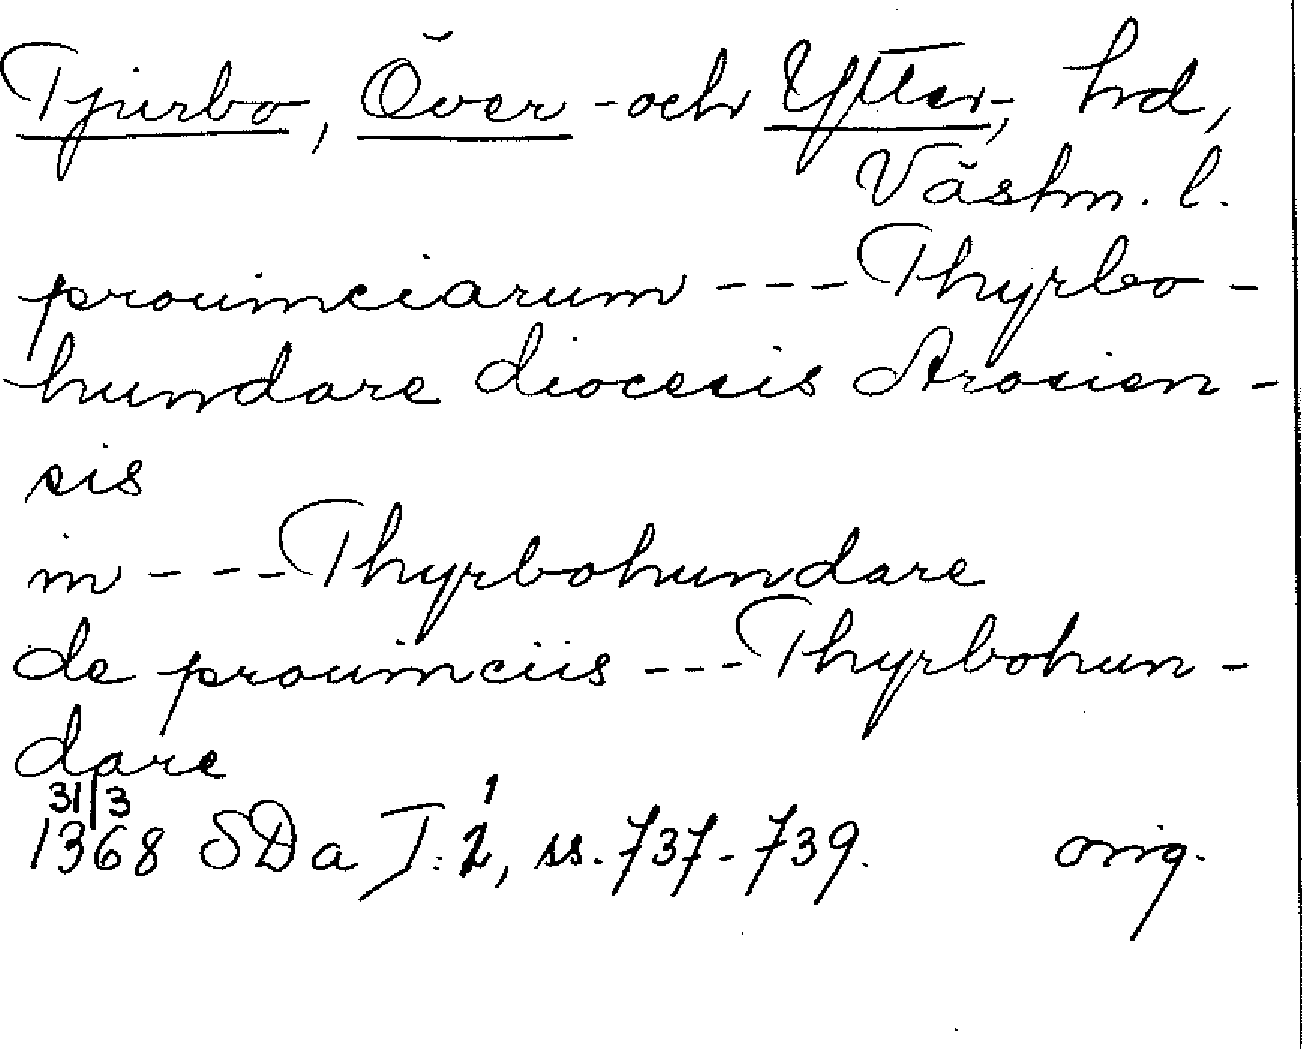 Tjurbo, Över- och Ytter-, hd,
Västm. l.
prouinciarum --- Thyrbo-
hundare diocesis Arosien-
sis
in --- Thyrbohundare
de prouinciis --- Thyrbohun-
dare
31/3
1368 SDa I: 1, ss. 737-739. orig.